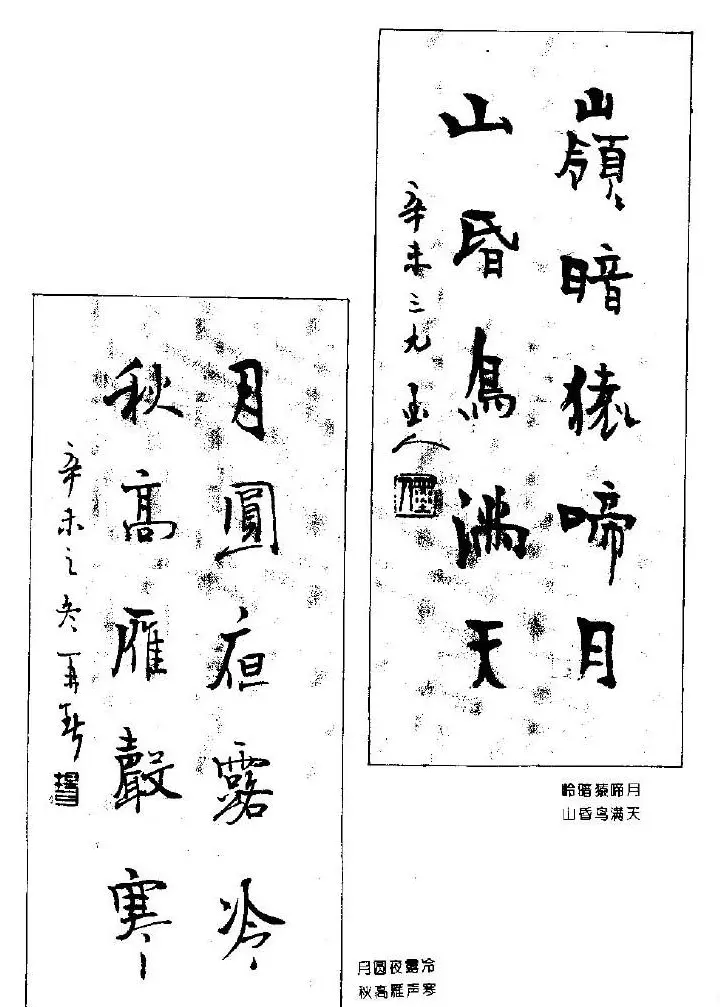 嶺暗猿啼月
山昏鳥滿天
辛未三九
岭暗猿啼月
山昏鸟满天
月圓亱露冷
秋高雁聲寒
辛未之冬
月圆夜露冷
秋高雁声寒